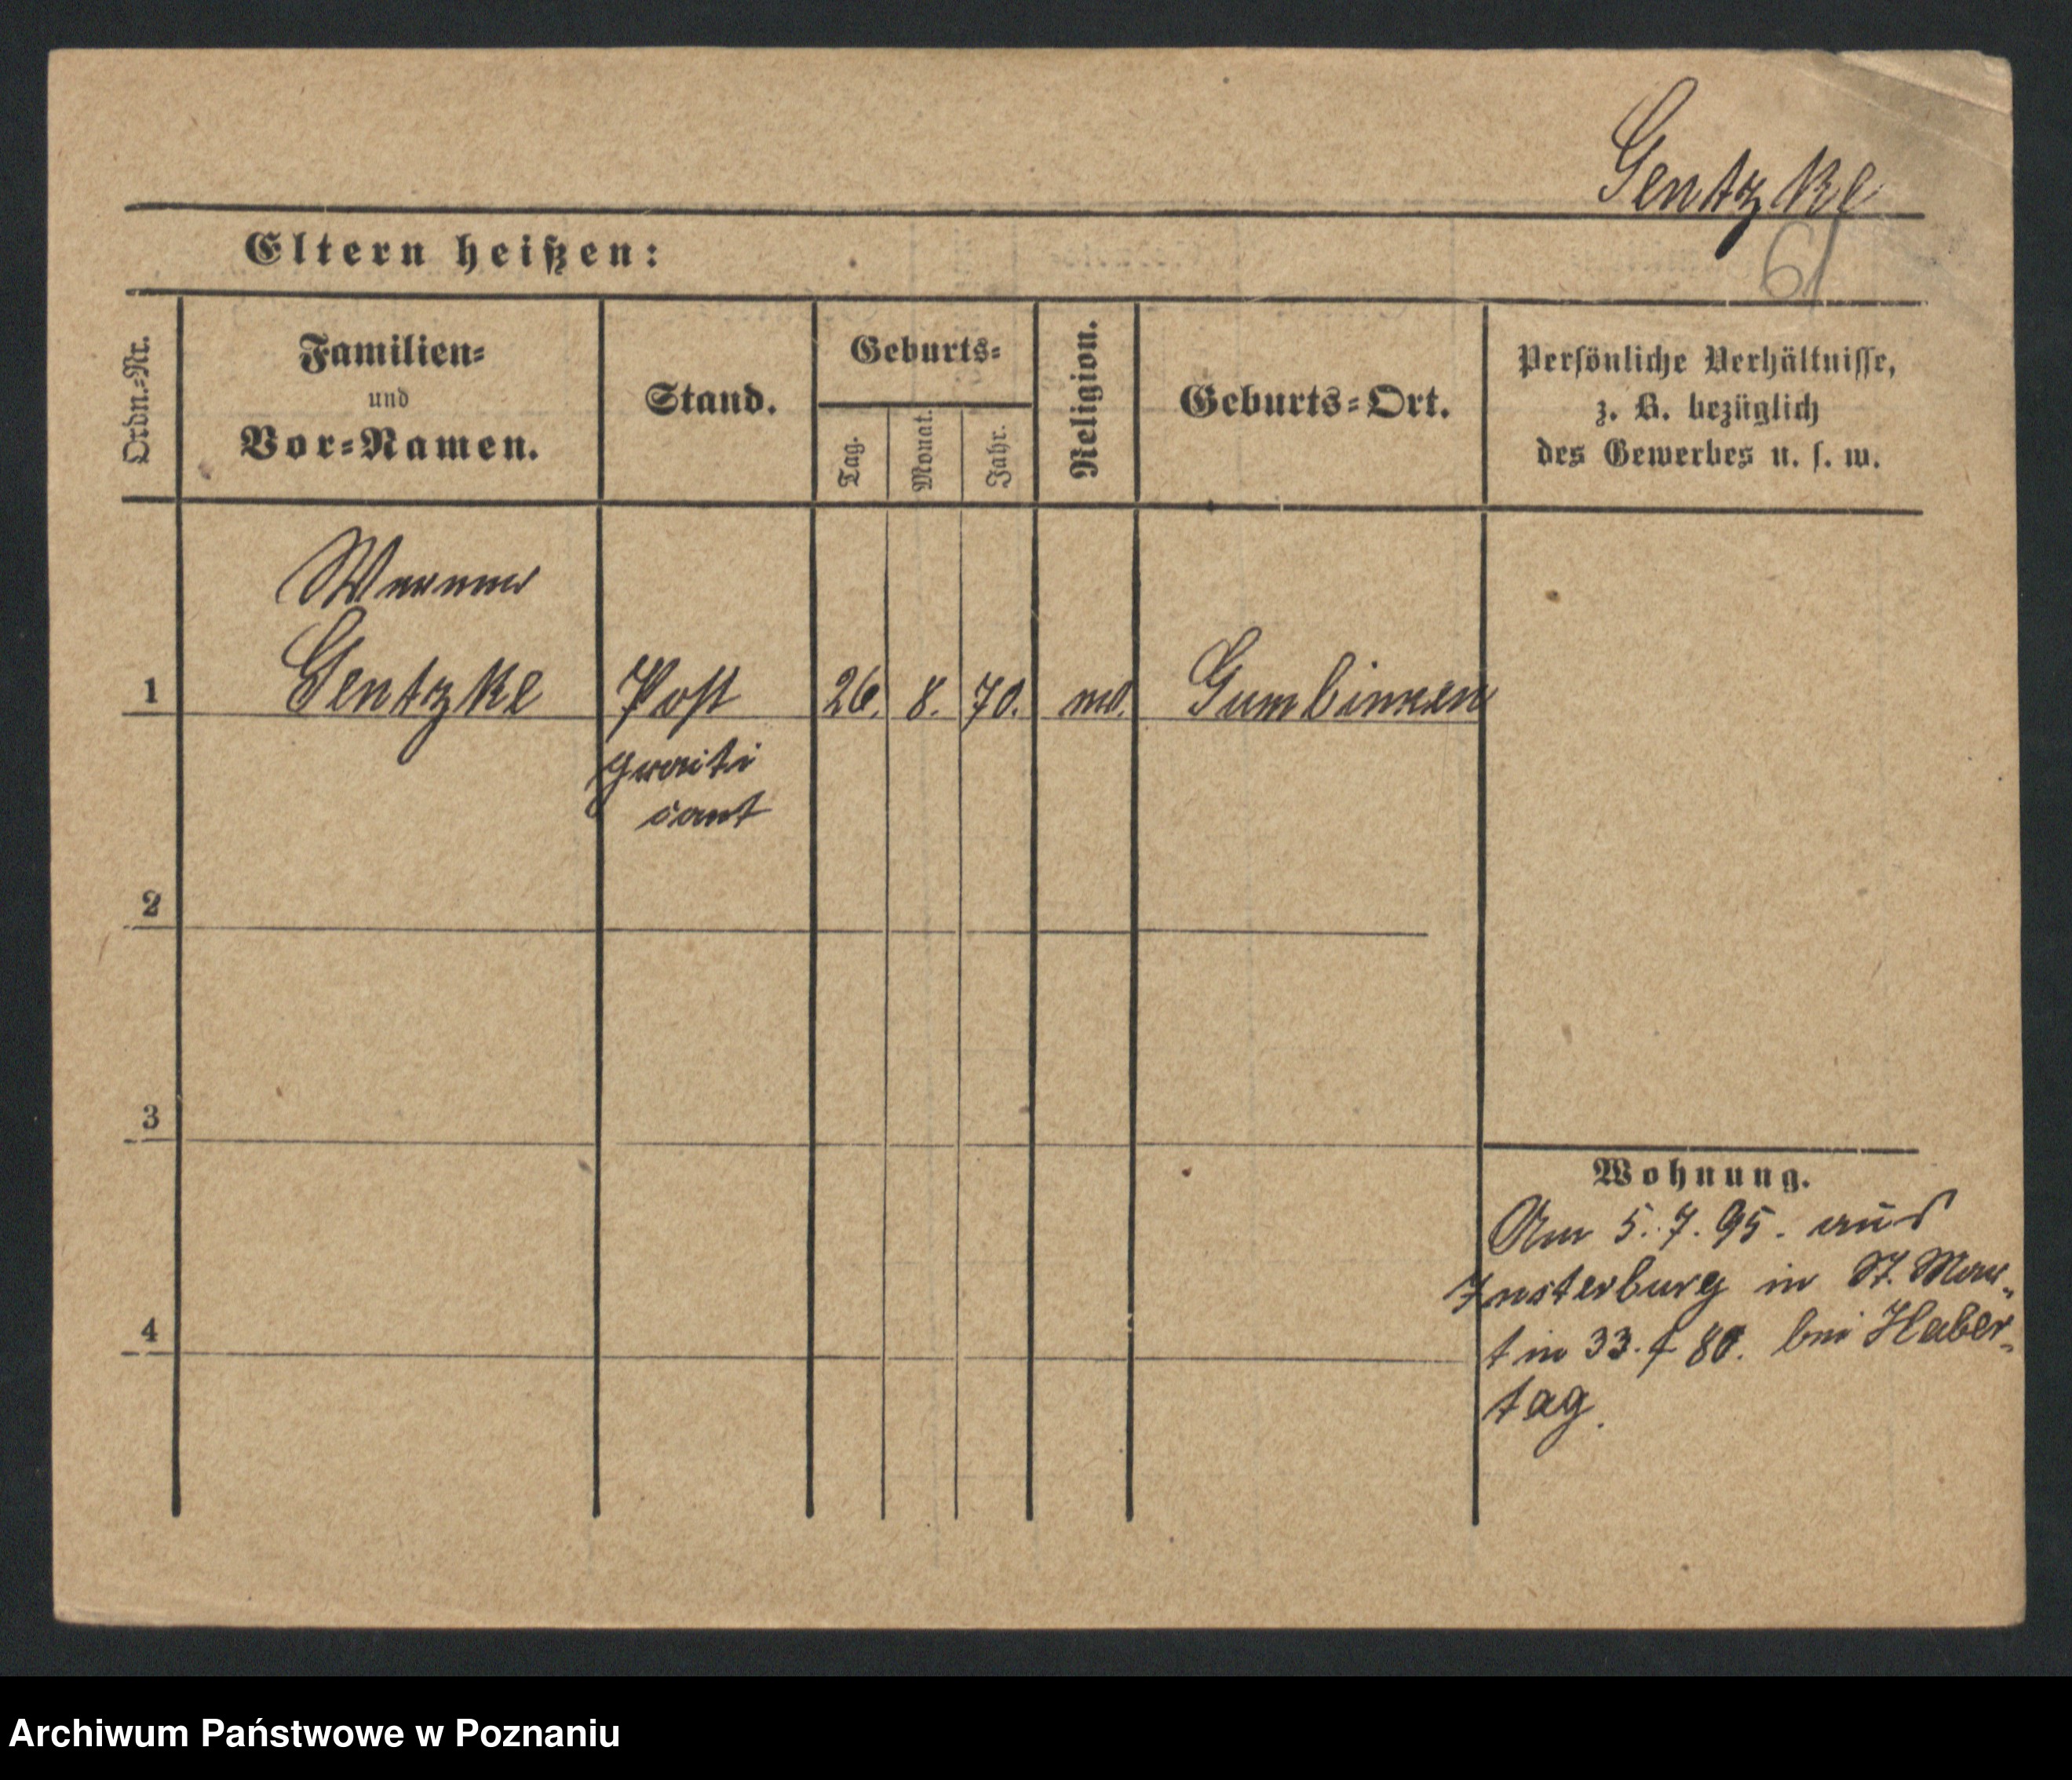 Gentzke
61
Eltern heißen:
Ordn.-Nr.
Familien-
und
Vor-Namen.
Stand.
Geburts-
Tag.
Monat.
Jahr.
Religion.
Geburts-Ort.
Persönliche Verhältnisse,
z. B. bezüglich
des Gewerbes u. s. w.
Werner
1 Gentzke Post 26. 8. 70. Gumbinnen
cant
2
3
4
Wohnung.
Am 5.7.95. aus
Insterburg in St. Mar-
tin 33. bei Haber-
tag.
Archiwum Państwowe w Poznaniu